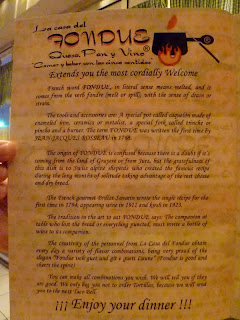 La casa del
FONDUE®
Queso, Pan y Vino®
"Comer y beber con los cinco sentidos
Extends you the most cordially Welcome
French word FONDUE, in literal sense means melted, and it
comes from the verb fondre (melt or grill), with the sense of drain or
strain.
The tools and accessories are: A special pot called caquelon made of
enameled iron, ceramic or metalize, a special fork called broche or
pinche and a burner. The term FONDUE was written the first time by
JEAN-JACQUES ROSSEAU in 1768.
The origin of FONDUE is confused because there is a doubt if it's
coming from the land of Gruyere or from Jura, but the gratefulness of
this dish is to Swiss alpine shepherds who created the famous recipe
during the long months of solitude taking advantage of the rest cheese
and dry bread.
The French gourmet Brillat-Savarin wrote the single recipe for the
first time in 1794, appearing after in 1911 and again in 1925.
The tradition in the art to eat FONDUE says: The companion at
table who lost the bread or everything punched, must invite a bottle of
wine to its companion.
The creativity of the personnel from La Casa del Fondue obtain
every day a variety of flavor combinations, being very proud of the
slogan "Fondue isch guet und git e gueti Luune" (Fondue is good and
cheers the spirit)
You can make all combinations you wish. We will tell you if they
are good. We only beg you not to order Tortillas, because we will send
you to the next Taco Bell.
¡¡¡ Enjoy your dinner !!!